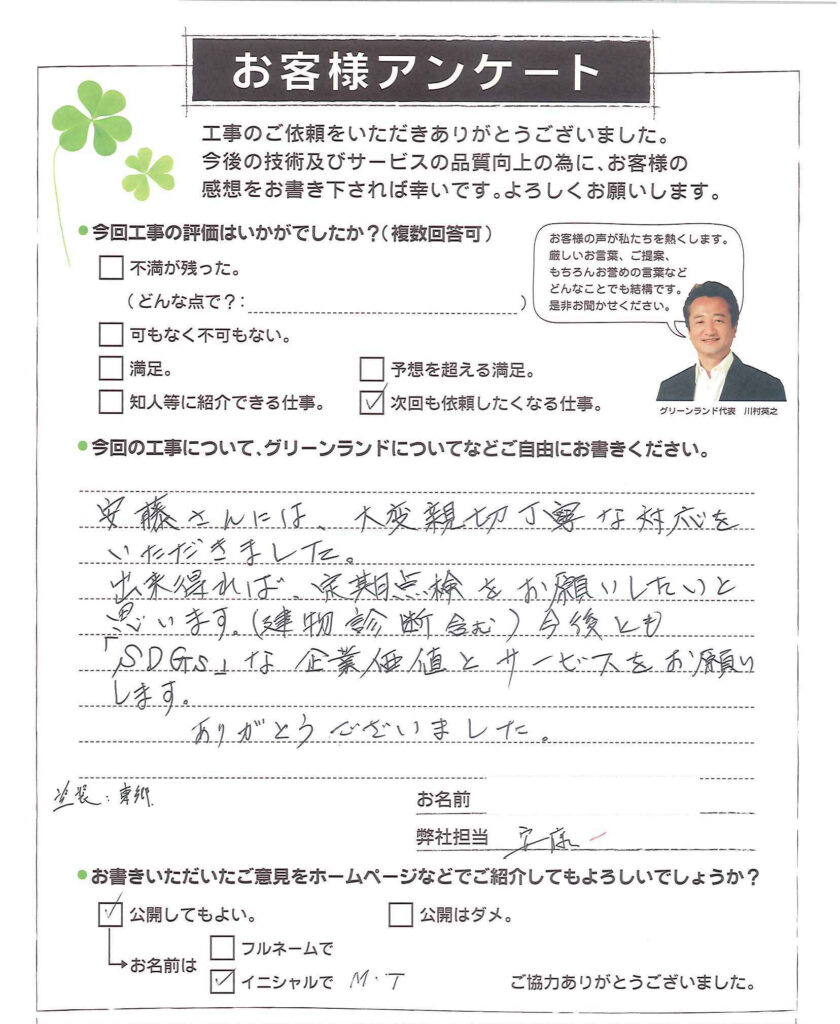 お客様アンケート
工事のご依頼をいただきありがとうございました。
今後の技術及びサービスの品質向上の為に、お客様の
感想をお書き下されば幸いです。よろしくお願いします。
●今回工事の評価はいかがでしたか？（複数回答可）
不満が残った。
（どんな点で？： ）
可もなく不可もない。
満足。
予想を超える満足。
知人等に紹介できる仕事。
次回も依頼したくなる仕事。
お客様の声が私たちを熱くします。
厳しいお言葉、ご提案、
もちろんお誉めの言葉など
どんなことでも結構です。
是非お聞かせください。
グリーンランド代表 川村英之
●今回の工事について、グリーンランドについてなどご自由にお書きください。
安藤さんには、大変親切丁寧な対応を
いただきました。
出来得れば、定期点検をお願いしたいと
思います。（建物診断含む）今後とも
「SDGs」な企業価値とサービスをお願い
します。
ありがとうございました。
塗装：東郷
お名前
弊社担当 安藤
●お書きいただいたご意見をホームページなどでご紹介してもよろしいでしょうか？
公開してもよい。
公開はダメ。
お名前は
フルネームで
イニシャルで M・T
ご協力ありがとうございました。